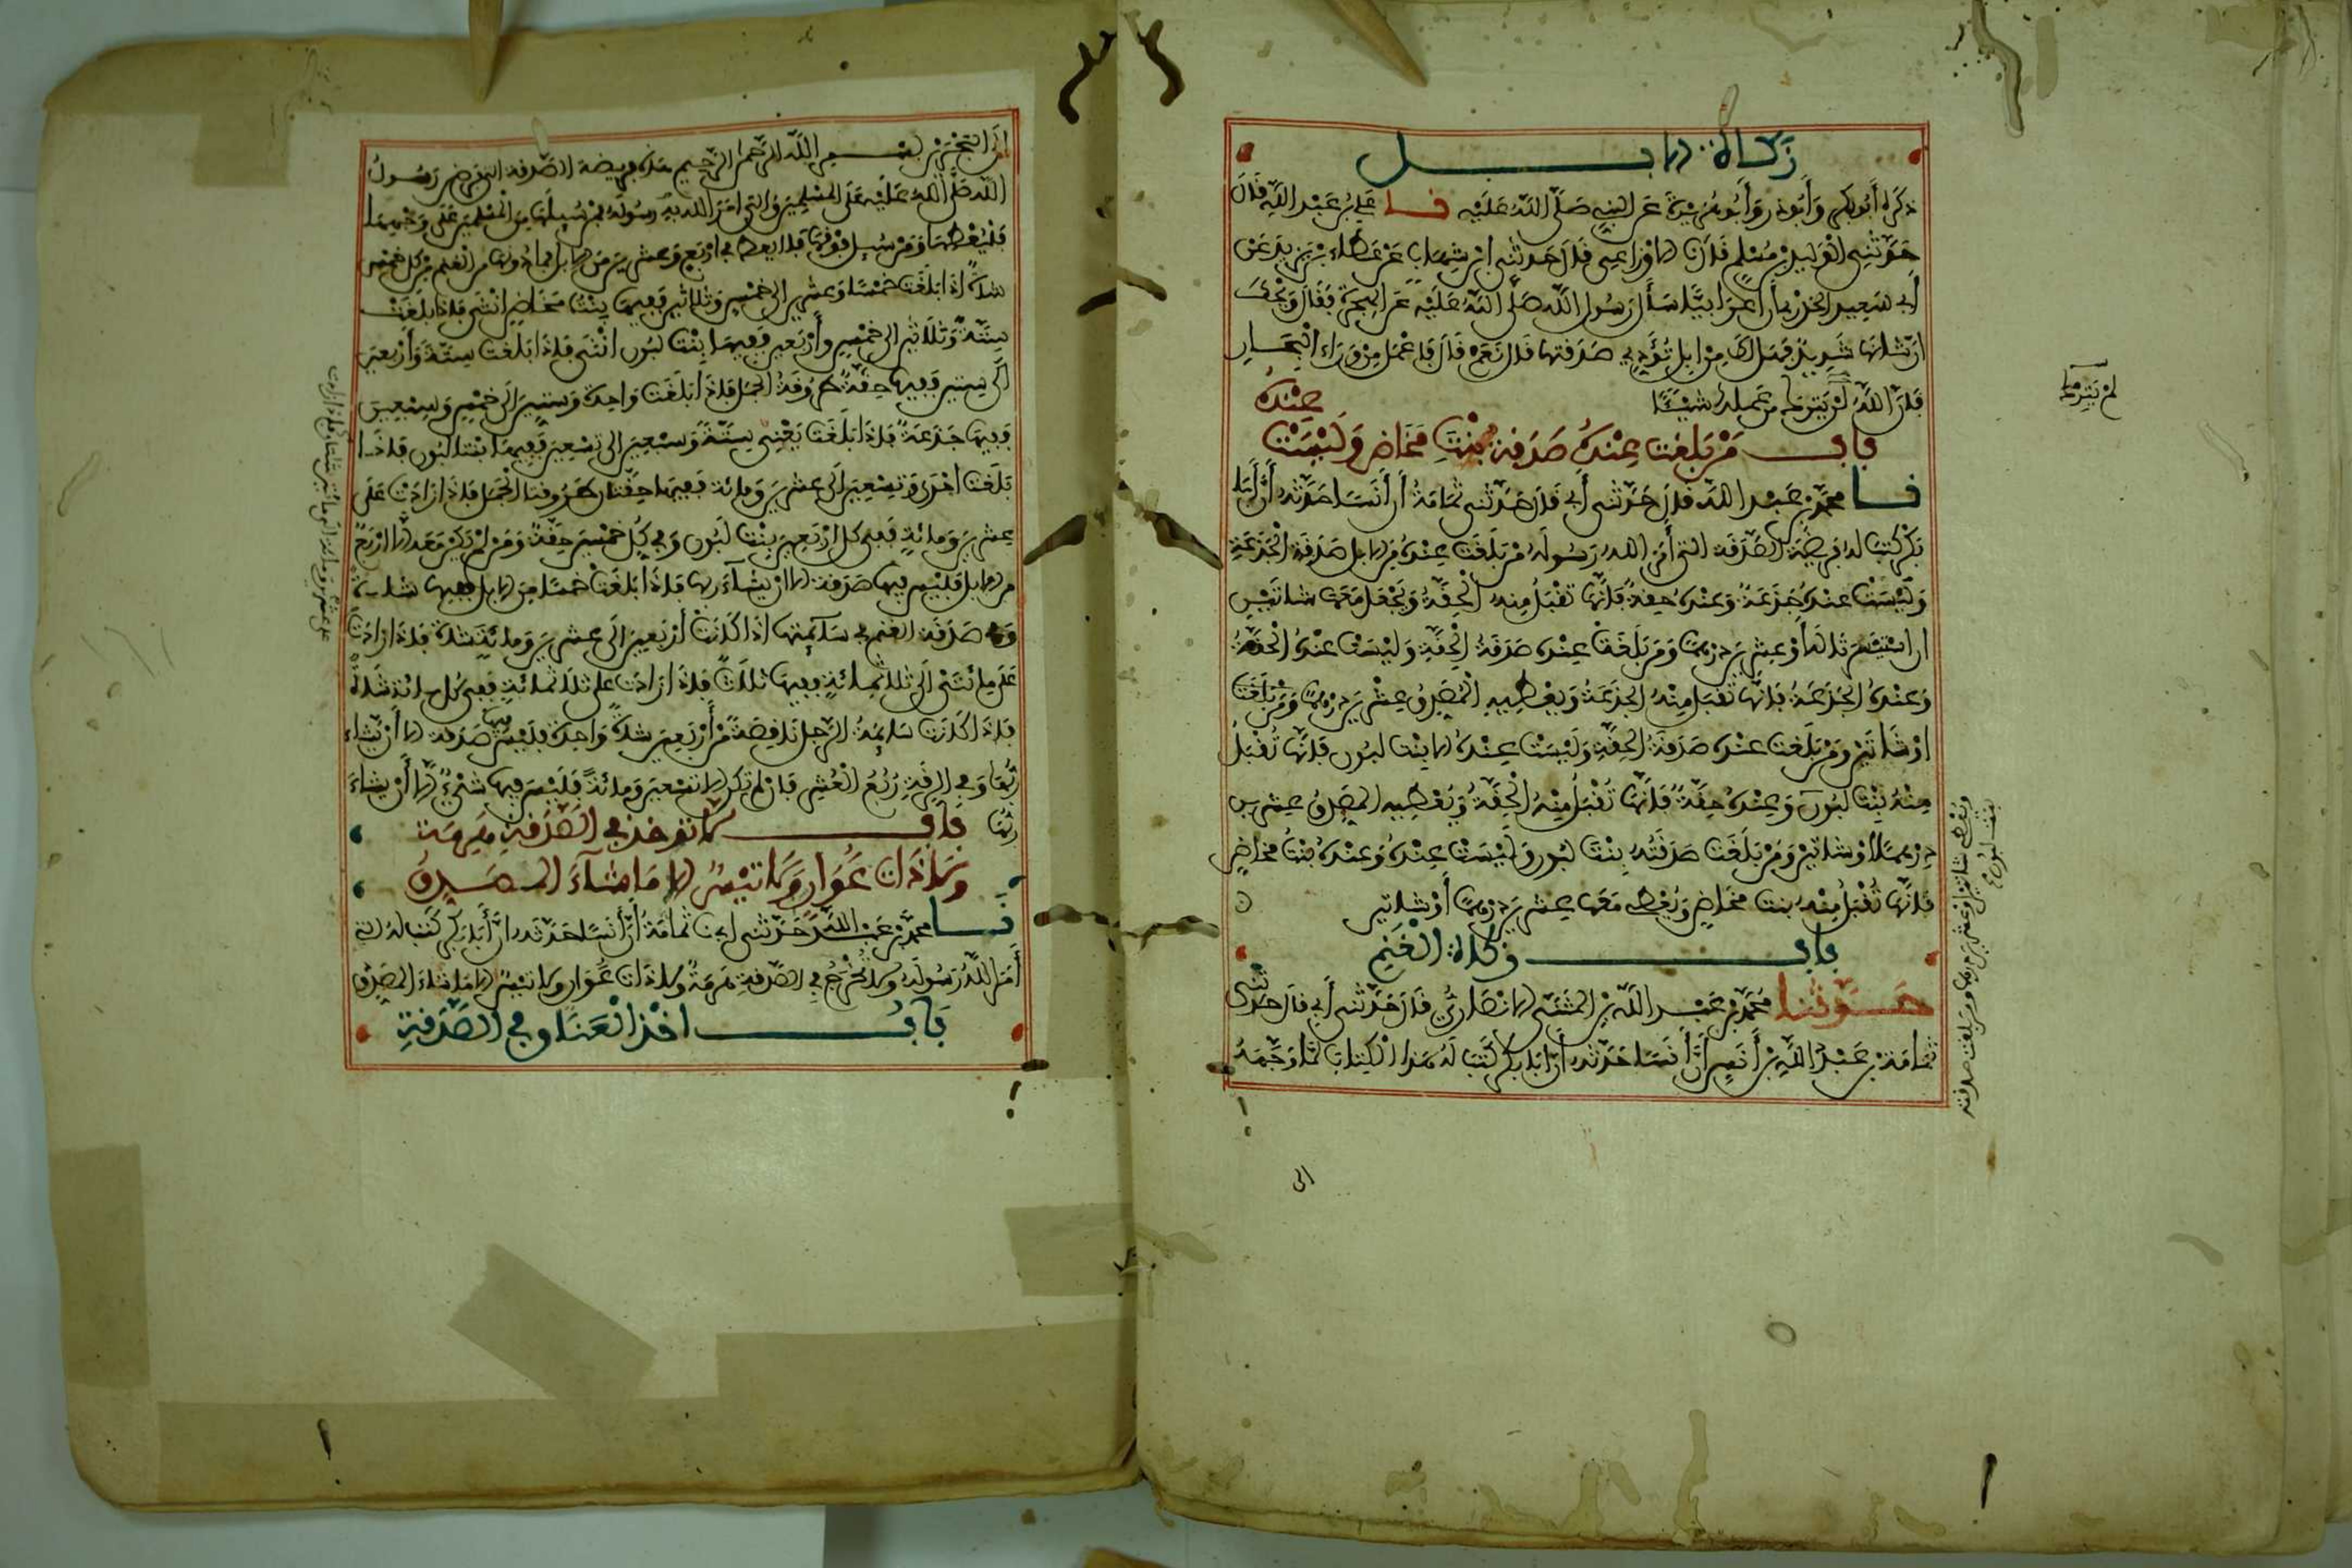 زكاة الابل
ذكره أبو بكر وأبو ذر وأبو هريرة عن النبي صلى الله عليه نا علي بن عبد الله قال
حدثني الوليد بن مسلم قال نا الاوزاعي قال حدثني ابن شهاب عن عطاء بن يزيد عن
أبي سعيد الخدري أن أعرابيا سأل رسول الله صلى الله عليه عن الهجرة فقال ويحك
ان شأنها شديد فهل لك من ابل تؤدي صدقتها قال نعم قال فاعمل من وراء البحار
فان الله لن يترك من عملك شيئا
باب من بلغت عنده صدقة بنت مخاض وليست
عنده
نا محمد بن عبد الله قال حدثني أبي قال حدثني ثمامة أن أنسا حدثه أن أبا
بكر كتب له فريضة الصدقة التي أمر الله رسوله من بلغت عنده من الابل صدقة الجذعة
وليست عنده جذعة وعنده حقة فإنها تقبل منه الحقة ويجعل معها شاتين
ان استيسرتا له أو عشرين درهما ومن بلغت عنده صدقة الحقة وليست عنده الحقة
وعنده الجذعة فإنها تقبل منه الجذعة ويعطيه المصدق عشرين درهما
أو شاتين ومن بلغت عنده صدقة الحقة وليست عنده الا بنت لبون فإنها تقبل
منه بنت لبون وعنده حقة فإنها تقبل منه الحقة ويعطيه المصدق عشرين
درهما أو شاتين ومن بلغت صدقته بنت لبون وليست عنده وعنده بنت مخاض
فإنها تقبل منه بنت مخاض ويعطي معها عشرين درهما أو شاتين
باب زكاة الغنم
حدثنا محمد بن عبد الله بن المثنى الانصاري قال حدثني أبي قال حدثني
ثمامة بن عبد الله بن أنس أن أنسا حدثه أن أبا بكر كتب له هذا الكتاب لما وجهه
لم يترك
ويعطي شاتين أو عشرين درهما ومن بلغت صدقته
بنت لبون
الى
الى البحرين بسم الله الرحمن الرحيم هذه فريضة الصدقة التي فرض رسول
الله صلى الله عليه على المسلمين والتي أمر الله به رسوله فمن سيلها من المسلمين على وجهها
فليعطها ومن سيل فوقها فلا يعط في أربع وعشرين من الابل فما دونها من الغنم من كل خمس
شاة اذا بلغت خمسا وعشرين الى خمس وثلاثين ففيها بنت مخاض انثى فإذا بلغت
ستة وثلاثين الى خمس وأربعين ففيها بنت لبون انثى فإذا بلغت ستة وأربعين
الى ستين ففيها حقة طروقة الجمل فإذا بلغت واحدة وستين الى خمس وسبعين
ففيها جذعة فإذا بلغت يعني ستة وسبعين الى تسعين ففيها بنتا لبون فإذا
بلغت احدى وتسعين الى عشرين ومائة ففيها حقتان طروقتا الجمل فإذا زادت على
عشرين ومائة ففي كل أربعين بنت لبون وفي كل خمسين حقة ومن لم يكن معه الا أربع
من الابل فليس فيها صدقة الا ان يشاء ربها فإذا بلغت خمسا من الابل ففيها شاة
وفي صدقة الغنم في سائمتها اذا كانت أربعين الى عشرين ومائة شاة فإذا زادت
على مائتين الى ثلاثمائة ففيها ثلاث فإذا زادت على ثلاثمائة ففي كل مائة شاة
فإذا كانت سائمة الرجل ناقصة من أربعين شاة واحدة فليس فيها صدقة الا أن يشاء
ربها وفي الرقة ربع العشر فان لم تكن الا تسعين ومائة فليس فيها شيء الا أن يشاء
ربها
باب لا تؤخذ في الصدقة هرمة
ولا ذات عوار ولا تيس الا ما شاء المصدق
نا محمد بن عبد الله حدثني ثمامة أن أنسا حدثه ان أبا بكر كتب له التي
أمر الله رسوله ولا تخرج في الصدقة هرمة ولا ذات عوار ولا تيس الا ما شاء المصدق
باب اخذ العناق في الصدقة